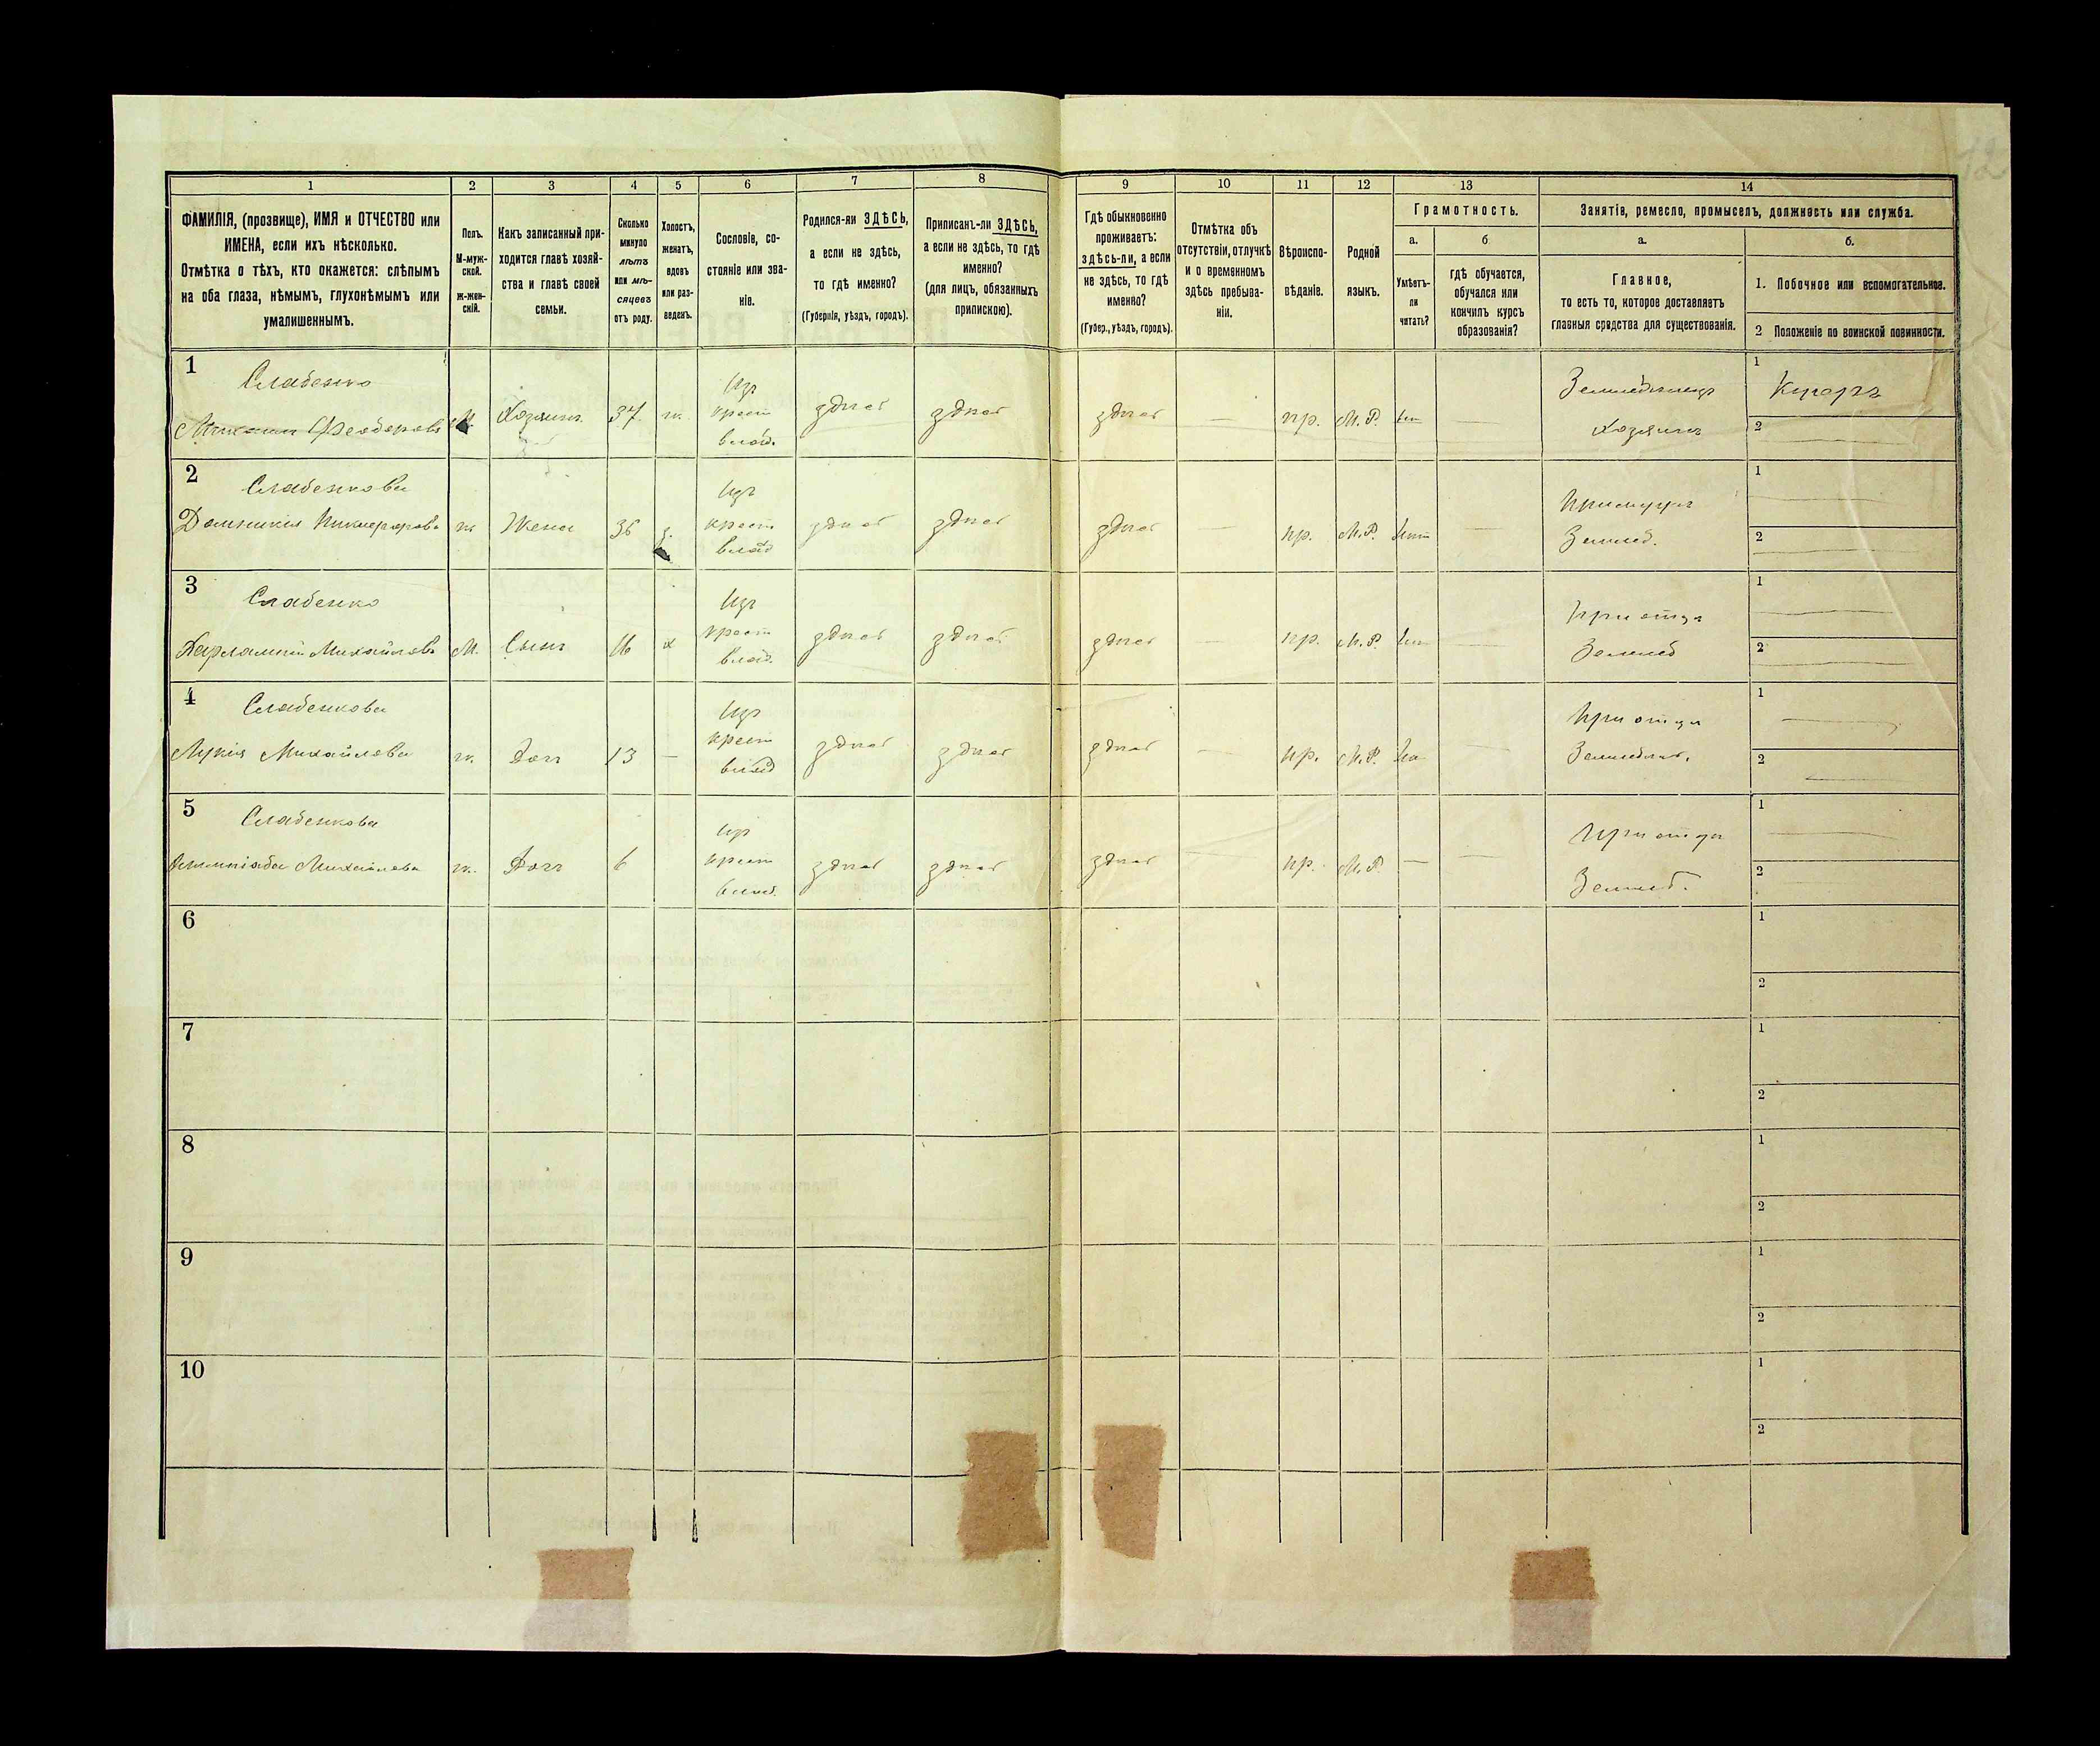 12
1 2 3 4 5 6 7 8 9 10 11 12 13 14
ФАМИЛІЯ, (прозвище), ИМЯ и ОТЧЕСТВО или
ИМЕНА, если ихъ нѣсколько.
Отмѣтка о тѣхъ, кто окажется: слѣпымъ
на оба глаза, нѣмымъ, глухонѣмымъ или
умалишеннымъ.
Полъ.
М-муж-
ской.
ж-жен-
скій.
Какъ записанный при-
ходится главѣ хозяй-
ства и главѣ своей
семьи.
Сколько
минуло
лѣтъ
или мѣ-
сяцевъ
отъ роду.
Холостъ,
женатъ,
вдовъ
или раз-
веденъ.
Сословіе, со-
стояніе или зва-
ніе.
Родился-ли ЗДѢСЬ,
а если не здѣсь,
то гдѣ именно?
(Губернія, уѣздъ, городъ).
Приписанъ-ли ЗДѢСЬ,
а если не здѣсь, то гдѣ
именно?
(для лицъ, обязанныхъ
припискою).
Гдѣ обыкновенно
проживаетъ:
здѣсь-ли, а если
не здѣсь, то гдѣ
именно?
(Губер., уѣздъ, городъ).
Отмѣтка объ
отсутствіи, отлучкѣ
и о временномъ
здѣсь пребыва-
ніи.
Вѣроиспо-
вѣданіе.
Родной
языкъ.
Грамотность.
а.
Умѣетъ-
ли
читать?
б
гдѣ обучается,
обучался или
кончилъ курсъ
образованія?
Занятія, ремесло, промыселъ, должность или служба.
а.
Главное,
то есть то, которое доставляетъ
главныя средства для существованія.
б.
1. Побочное или вспомогательное.
2 Положеніе по воинской повинности.
1
Слабенко
Михаилъ Феодоровъ
М.
Хозяинъ
37
ж.
Изъ
крест
влад.
здѣсь
здѣсь
здѣсь
—
пр.
М. Р.
—
Земледѣлецъ
Хозяинъ
1
Кучеръ
2
2
Слабенкова
Домникія Никифорова
ж
Жена
36
з.
Изъ
крест
влад
здѣсь
здѣсь
здѣсь
—
пр.
М. Р.
нѣт
—
При мужѣ
Землед.
1
2
3
Слабенко
Харлампій Михайловъ
М.
Сынъ
16
х
Изъ
крест
влад.
здѣсь
здѣсь
здѣсь
—
пр.
М. Р.
—
При отцѣ
Землед
1
2
4
Слабенкова
Лукія Михайлова
ж.
Дочь
13
—
Изъ
крест
влад
здѣсь
здѣсь
здѣсь
—
пр.
М. Р.
—
При отцѣ
Земледѣл.
1
2
5
Слабенкова
Михайлова
ж.
Дочь
6
Изъ
крест
влад.
здѣсь
здѣсь
здѣсь
—
пр.
М. Р.
—
—
При отцѣ
Землед.
1
2
6
1
2
7
1
2
8
1
2
9
1
2
10
1
2